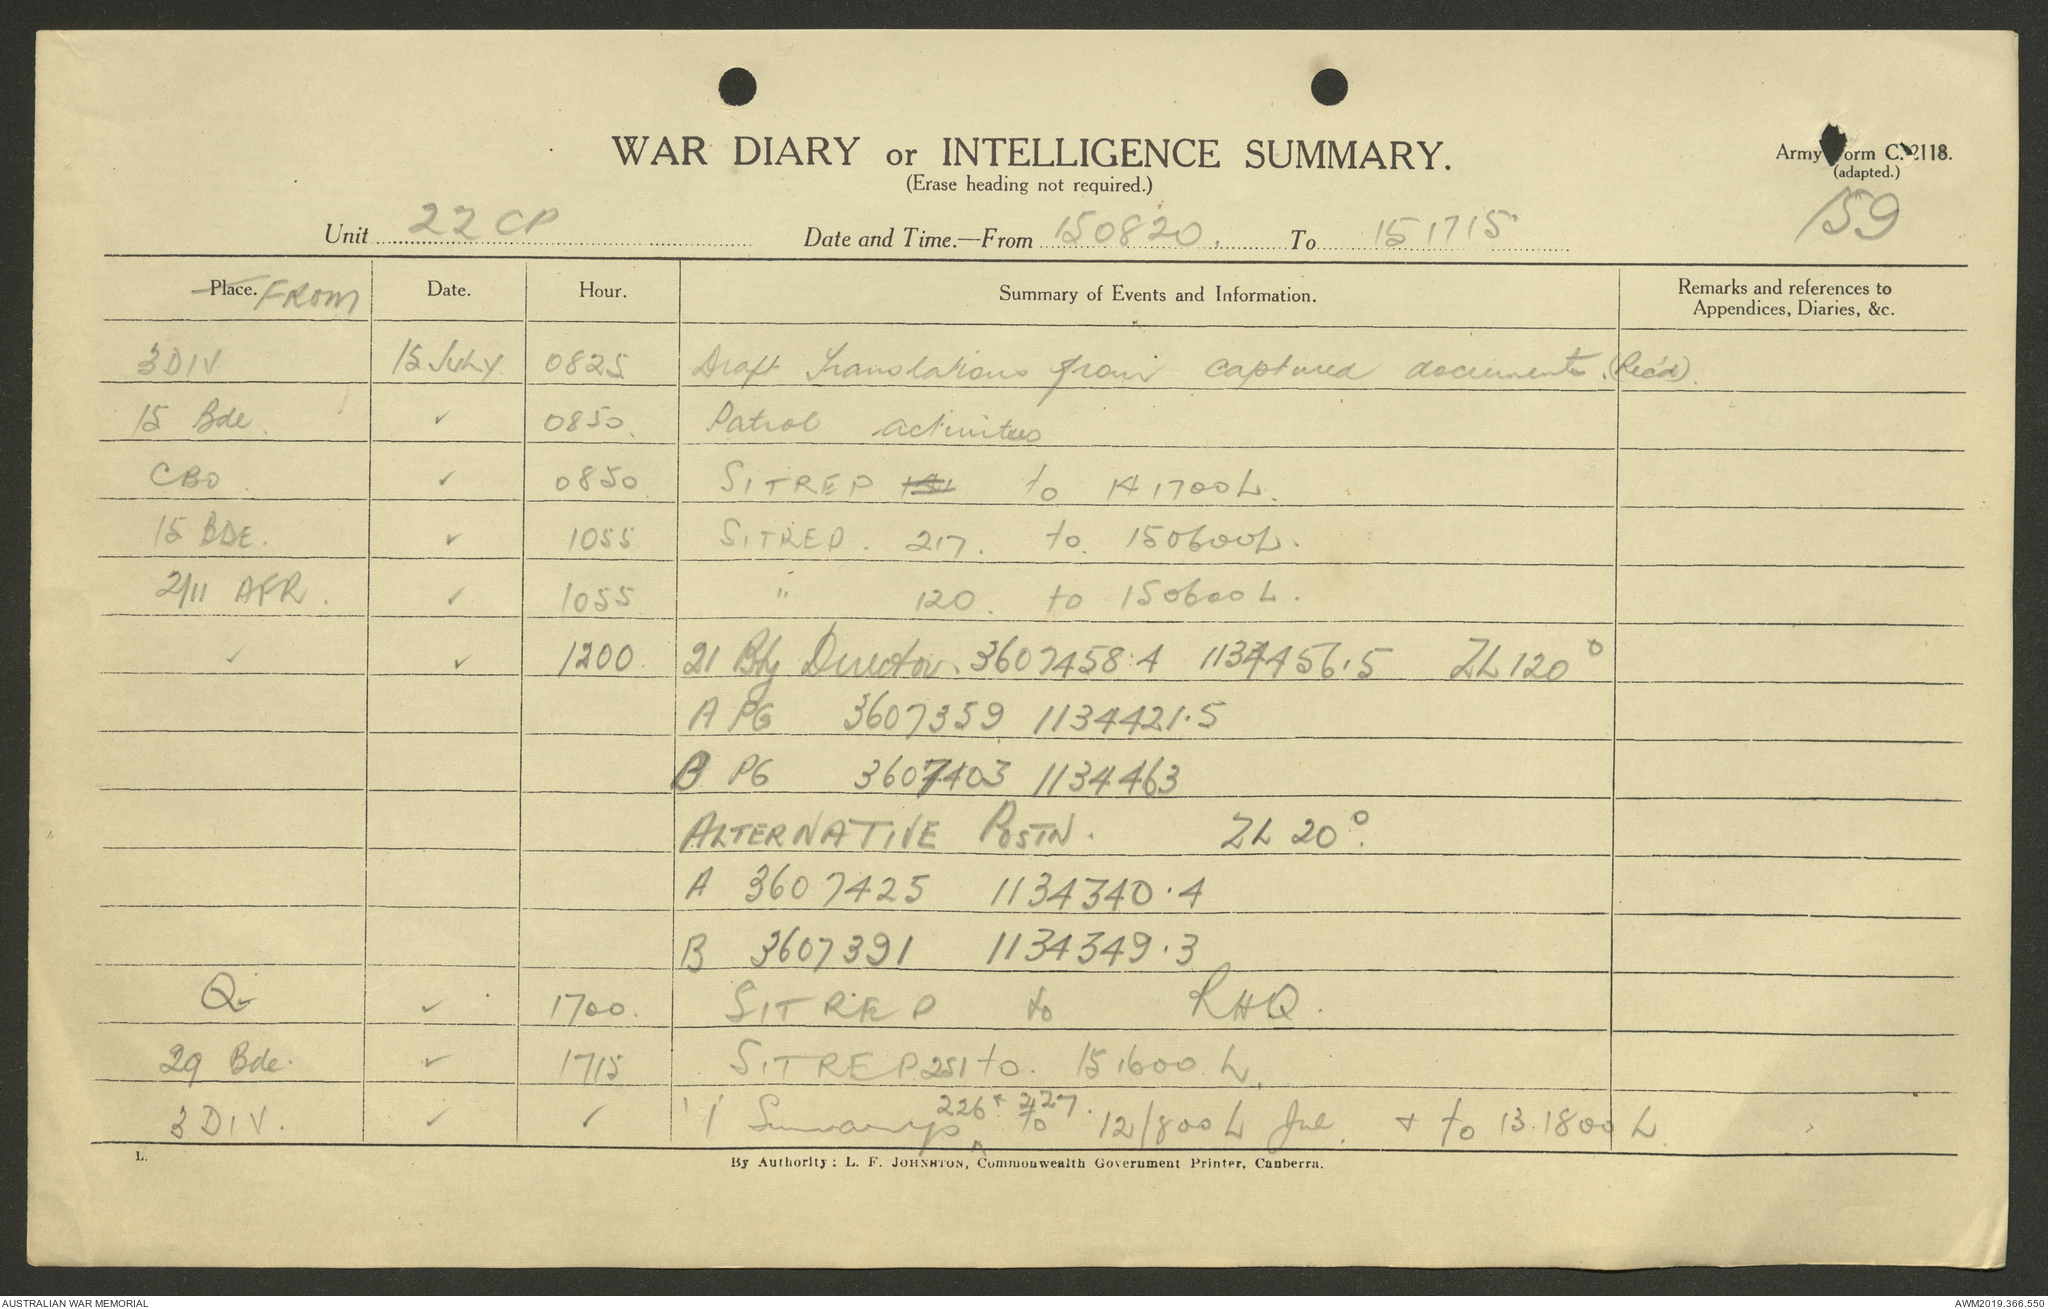 WAR DIARY or INTELLIGENCE SUMMARY.
(Erase heading not required.)
Army Form C. 2118.
(adapted.)
159
Unit 22 CP Date and Time.—From 150820. To 151715
Place. FROM Date. Hour. Summary of Events and Information. Remarks and references to
Appendices, Diaries, &c.
3 DIV 15 JULY 0825 Draft Translations from captured documents. (Rec'd).
15 Bde. ✓ 0850. Patrol activities
CBO ✓ 0850 SITREP 141 to 141700L.
15 BDE. ✓ 1055 SITREP. 217. to 150600L.
2/11 AFR. ✓ 1055 " 120. to 150600L.
✓ ✓ 1200. 21 Bty Director. 3607458.4 1134456.5 ZL 120°
A PG 3607359 1134421.5
B PG 3607403 1134463
ALTERNATIVE POSTN. ZL 20°.
A 3607425 1134340.4
B 3607391 1134349.3
Q ✓ 1700. SITREP to RHQ.
29 Bde. ✓ 1715 SITREP 251 to 151600 L.
3 DIV. ✓ ✓ " Summarys 226 + 227. to 121800 L Jul. + to 13.1800 L
L.
By Authority: L. F. JOHNSTON, Commonwealth Government Printer, Canberra.
AUSTRALIAN WAR MEMORIAL
AWM2019.366.550